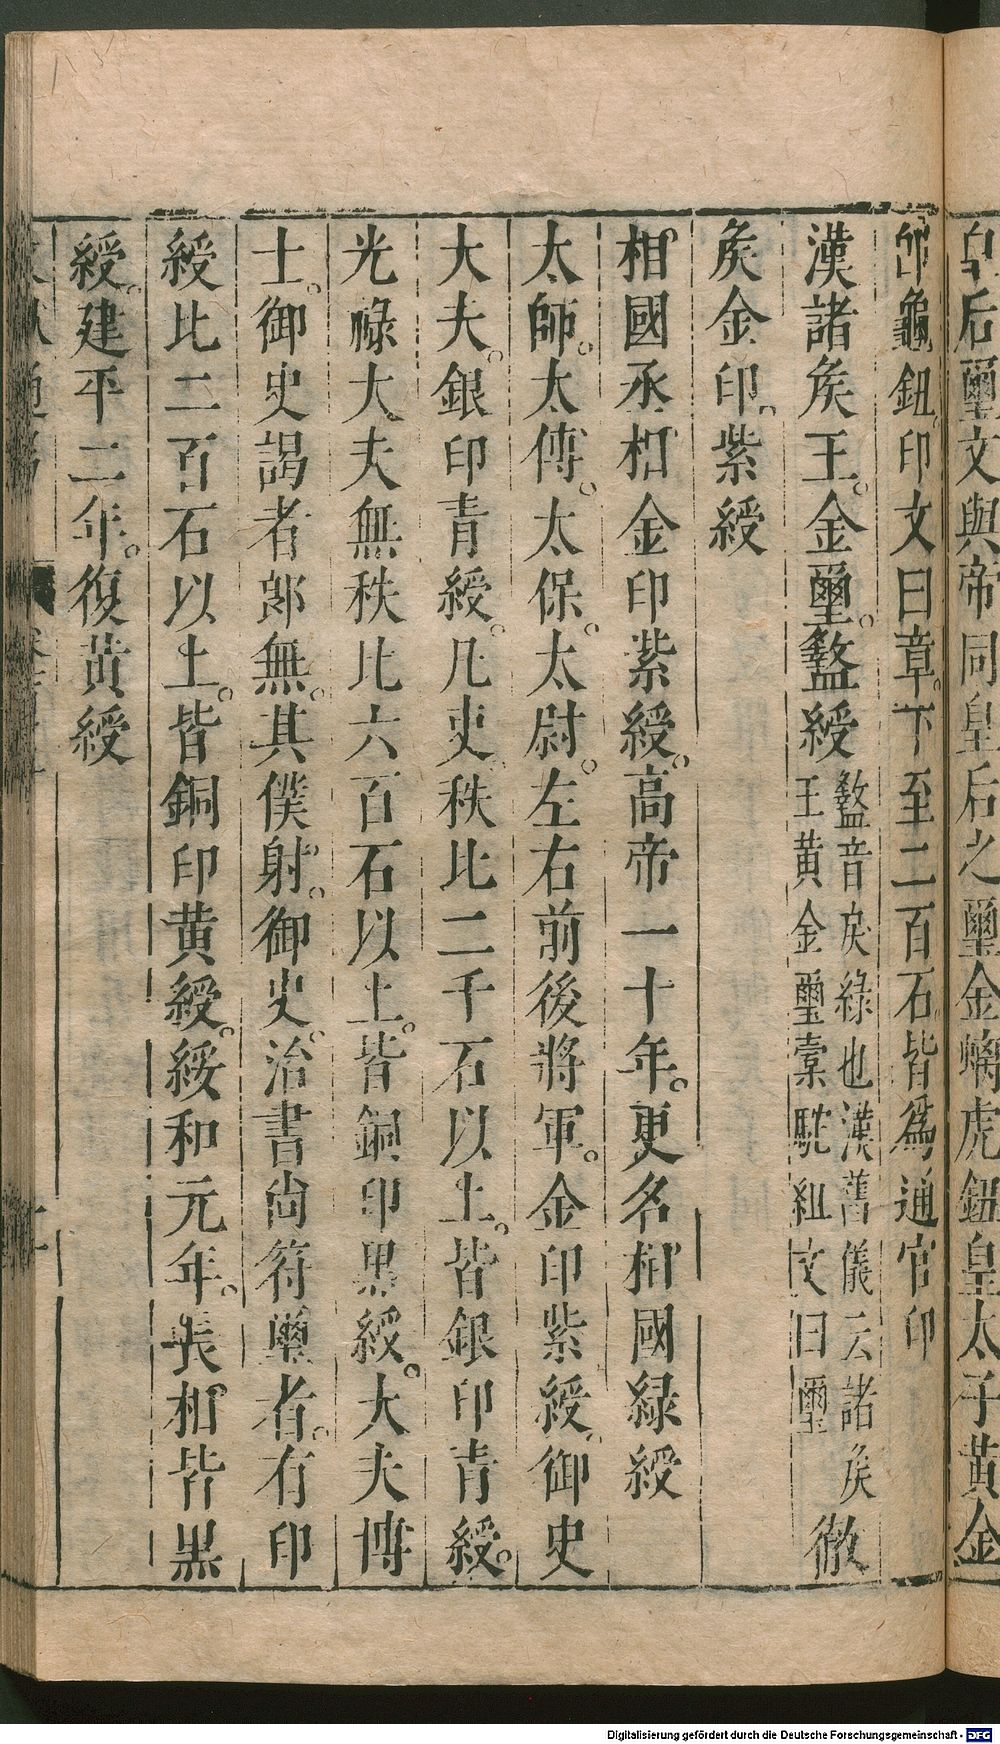 皇后璽文與帝同皇后之璽金螭虎鈕皇太子黃金
印龜鈕印文曰章下至二百石皆爲通官印
漢諸矦王金璽盭綬盭音戾綠也漢舊儀云諸矦王黃金璽橐駝鈕文曰璽徹
矦金印紫綬
相國丞相金印紫綬高帝一十年更名相國緑綬
太師太傅太保太尉左右前後將軍金印紫綬御史
大夫銀印青綬凡吏秩比二千石以上皆銀印青綬
光祿大夫無秩比六百石以上皆銅印黑綬大夫博
士御史謁者郎無其僕射御史治書尚符璽者有印
綬比二百石以上皆銅印黃綬綏和元年長相皆黑
綬建平二年復黃綬
Digitalisierung gefördert durch die Deutsche Forschungsgemeinschaft - DFG